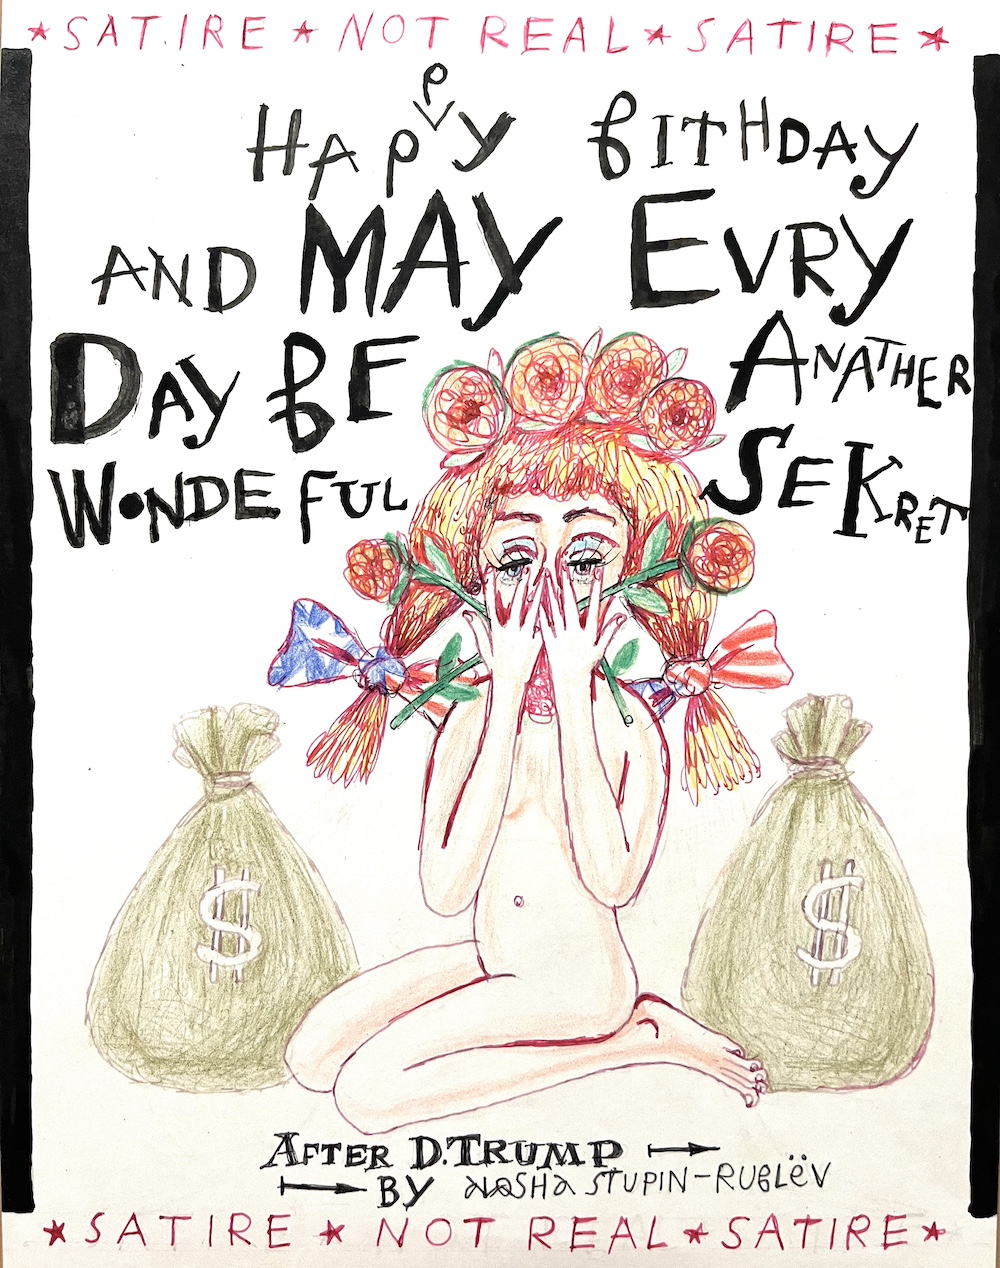 ★SATIRE★NOT REAL★SATIRE★
HAPPY BITHDAY
AND MAY EVRY
DAY BE ANATHER
WONDEFUL SEKRET
$ $
AFTER D.TRUMP
BY STUPIN-RUBLËV
★SATIRE★NOT REAL★SATIRE★